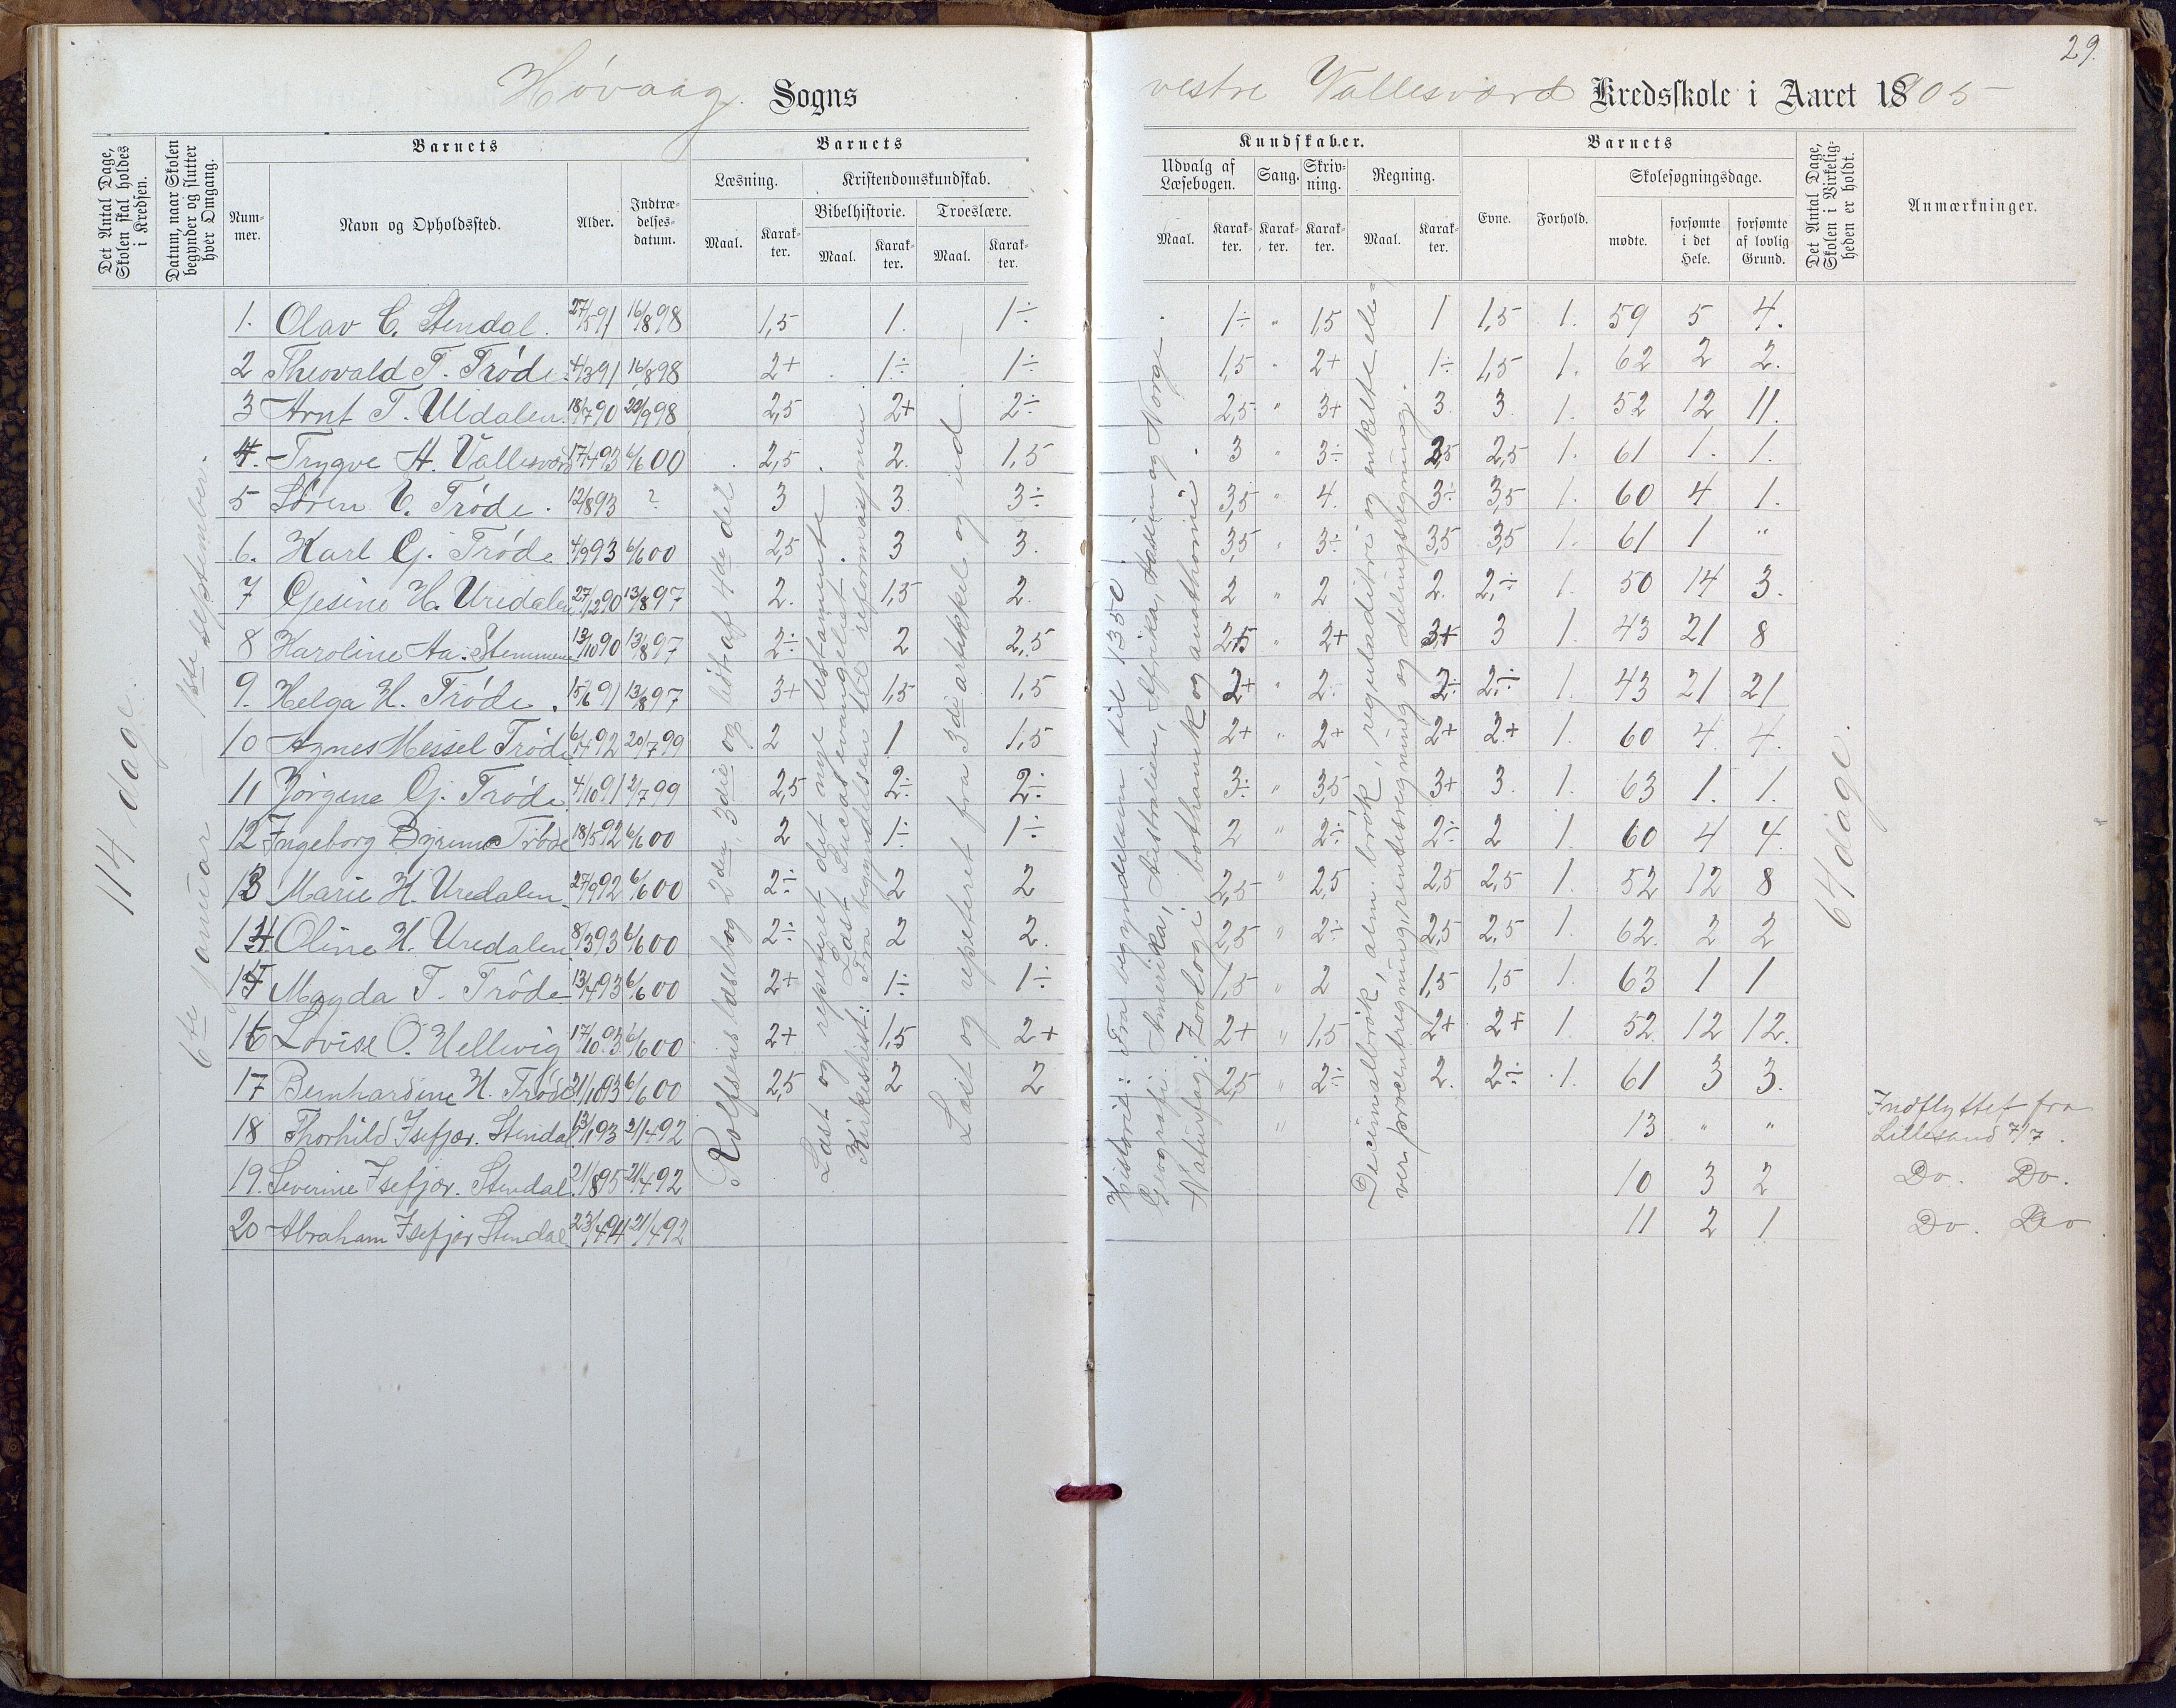 29.
Høvaag Sogns
vestre Vallesværd Kredsskole i Aaret 1905
Det Antal Dage, Skolen skal holdes i Kredsen.
Datum, naar Skolen begynder og slutter hver Omgang.
Barnets
Nummer.
Navn og Opholdssted.
Alder.
Indtrædelsesdatum.
Barnets
Læsning.
Maal.
Karakter.
Kristendomskundskab.
Bibelhistorie.
Maal.
Karakter.
Troeslære.
Maal.
Karakter.
Kundskaber.
Udvalg af Læsebogen.
Maal.
Karakter.
Sang.
Karakter.
Skrivning.
Karakter.
Regning.
Maal.
Karakter.
Barnets
Evne.
Forhold.
Skolesøgningsdage.
mødte.
forsømte i det Hele.
forsømte af lovlig Grund.
Det Antal Dage, Skolen i Virkeligheden er holdt.
Anmærkninger.
114 dage.
6te januar – 1ste september.
1. Olav C. Stendal. 27/5 91 16/8 98 1,5 1. 1÷ 1÷ " 1,5 1 1,5 1. 59 5 4.
2 Theovald T. Trøde. 4/3 91 16/8 98 2+ 1÷ 1÷ 1,5 " 2+ 1÷ 1,5 1. 62 2 2.
3 Arnt T. Uldalen. 18/7 90 22/9 98 2,5 2+ 2÷ 2,5 " 3+ 3. 3 1. 52 12 11.
4. Trygve A. Vallesværd 17/4 93 6/6 00 2,5 2. 1,5 3 " 3÷ 2,5 2,5 1. 61 1. 1.
5 Søren C. Trøde. 12/8 93 ? 3 3 3÷ 3,5 " 4. 3÷ 3,5 1. 60 4 1.
6. Karl G. Trøde 4/9 93 6/6 00 2,5 3 3. 3,5 " 3÷ 3,5 3,5 1. 61 1 "
7 Gesine H. Uredalen 27/12 90 13/8 97 2. 1,5 2. 2 " 2 2. 2÷ 1. 50 14 3.
8 Karoline Aa. Stemmene 13/10 90 13/8 97 2÷ 2 2,5 2,5 " 2+ 3+ 3 1. 43 21 8
9. Helga H. Trøde. 15/6 91 13/8 97 3+ 1,5 1,5 2+ " 2. 2÷ 2÷ 1. 43 21 21
10 Agnes Messel Trøde 6/4 92 20/7 99 2 1 1,5 2+ " 2+ 2+ 2+ 1. 60 4. 4.
11 Jørgine G. Trøde 4/10 91 2/7 99 2,5 2÷ 2÷ 3÷ " 3,5 3+ 3. 1. 63 1. 1.
12 Ingeborg Bjerum Trøde 18/5 92 6/6 00 2 1÷ 1÷ 2 " 2÷ 2÷ 2 1. 60 4 4.
13 Marie H. Uredalen 27/9 92 6/6 00 2÷ 2 2 2,5 " 2,5 2,5 2,5 1. 52 12 8
14 Oline H. Uredalen 8/3 93 6/6 00 2÷ 2 2. 2,5 " 2÷ 2,5 2,5 1. 62. 2 2
15 Magda T. Trøde 13/4 93 6/6 00 2+ 1÷ 1÷ 1,5 " 2 1,5 1,5 1. 63 1 1
16 Lovise O. Hellevig 17/10 93 6/6 00 2+ 1,5 2+ 2+ " 1,5 2+ 2+ 1. 52. 12 12.
17 Bernhardine H. Trøde 31/10 93 6/6 00 2,5 2 2 2,5 " 2÷ 2. 2÷ 1. 61 3 3.
18 Thorhild Isefjær. Stendal 13/1 93 21/4 92 " 13 " " Indflyttet fra Lillesand 7/7.
19. Severine Isefjær. Stendal. 21/8 95 21/4 92 10 3 2 Do. Do.
20 Abraham Isefjær Stendal 23/4 94 21/4 92 11 2 1 Do. Do
Rolfsens læsebog 2den, 3die og lidt af 4de del
Læst og repeteret det nye testamente
Læst Lucas evangeliet
Kirkehist: Fra begyndelsen til reformasjonen
Læst og repeteret fra 3die artikkel og ud
Historie: Fra begyndelsen til 1350.
Geografi: Amerika, Australien, Afrika, Asien og Norge
Naturfag: Zoologi, bothanik og anathomi
Decimalbrøk, alm. brøk, reguladitri og enkelte elever procentregning, rentesregning og delingsregning.
64 dage.